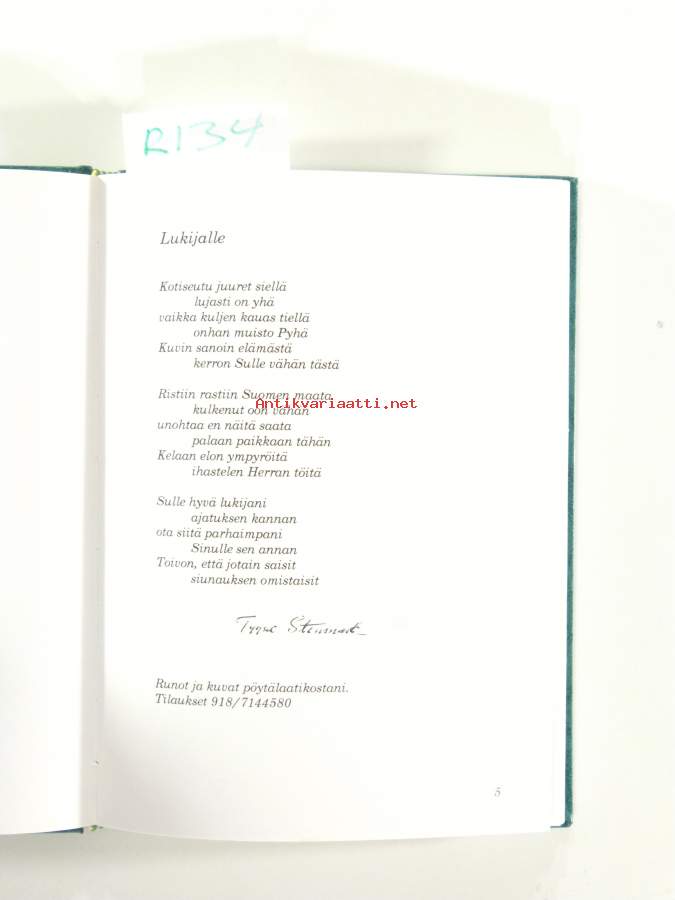 R134
Lukijalle
Kotiseutu juuret siellä
lujasti on yhä
vaikka kuljen kauas tiellä
onhan muisto Pyhä
Kuvin sanoin elämästä
kerron Sulle vähän tästä
Ristiin rastiin Suomen maata
Antikvariaatti.net
kulkenut oon vähän
unohtaa en näitä saata
palaan paikkaan tähän
Kelaan elon ympyröitä
ihastelen Herran töitä
Sulle hyvä lukijani
ajatuksen kannan
ota siitä parhaimpani
Sinulle sen annan
Toivon, että jotain saisit
siunauksen omistaisit
Tyyne
Runot ja kuvat pöytälaatikostani.
Tilaukset 918/7144580
5